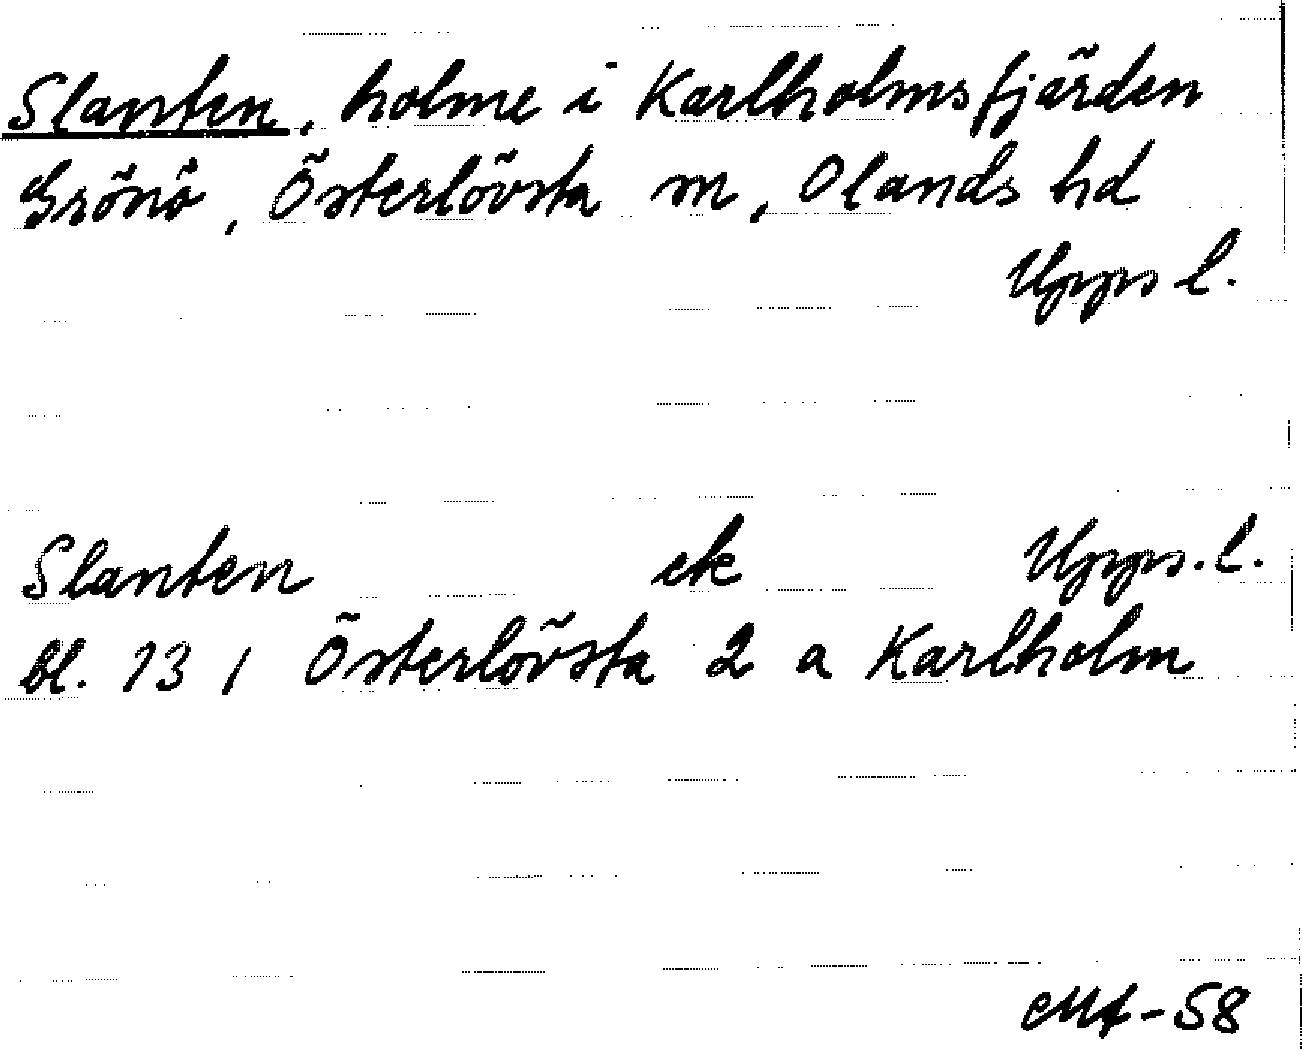 Slanten, holme i Karlholmsfjärden
Grönö, Österlövsta sn, Olands hd
Upps l.
Slanten ek Upps. l.
bl. 13 1 Österlövsta 2 a Karlholm
-58